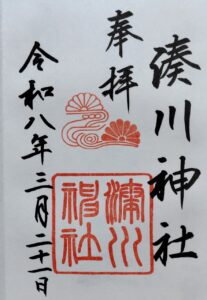 奉拝
湊川神社
湊川神社
令和八年三月二十一日